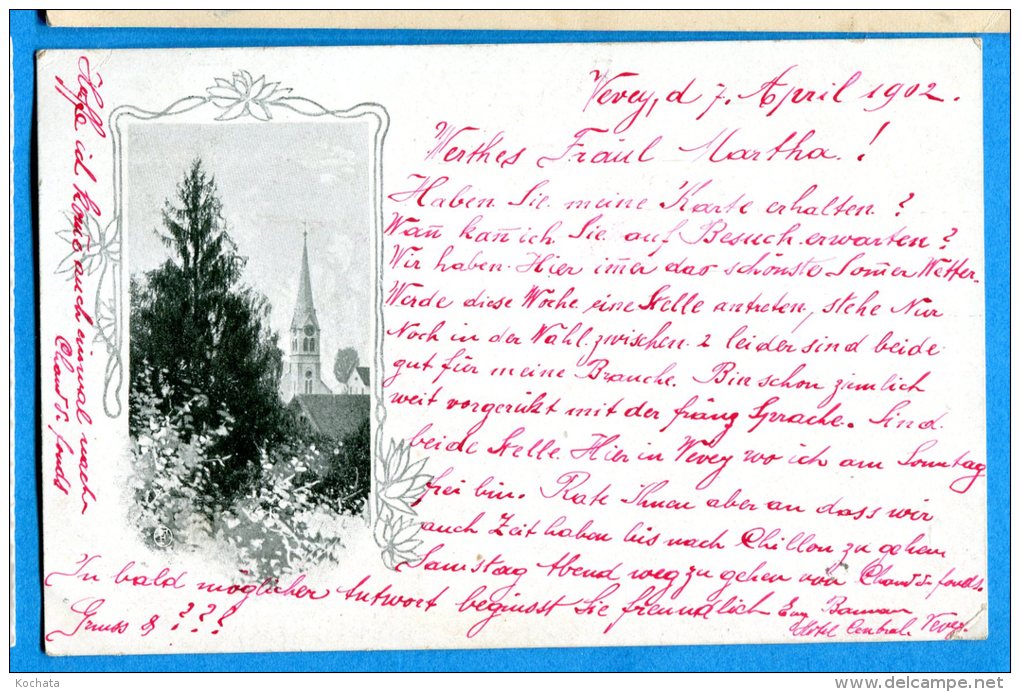 Vevey, d 7. April 1902.
Werthes Fräul Martha!
Haben Sie meine Karte erhalten?
Wan̄ kan̄ ich Sie auf Besuch erwarten?
Wir haben Hier im̄er das schönste Som̄er Wetter.
Werde diese Woche eine Stelle antreten, stehe Nur
Noch in der Wahl zwischen 2 leider sind beide
gut für meine Branche. Bin schon ziemlich
weit vorgerükt mit der franz Sprache. Sind
beide Stelle Hier in Vevey wo ich am Sonntag
frei bin. Rate Ihnen aber an dass wir
auch Zeit haben bis nach Chillon zu gehen
Samstag Abend weg zu gehen von Chaud d. fonds.
In bald möglicher Antwort begüsst Sie freundlich Eug Bauman
Hotel Central Vevey.
Gruss & ???
Hoffe ich kom̄e auch einmal nach
Chaud d. fonds
Kochata
www.delcampe.net